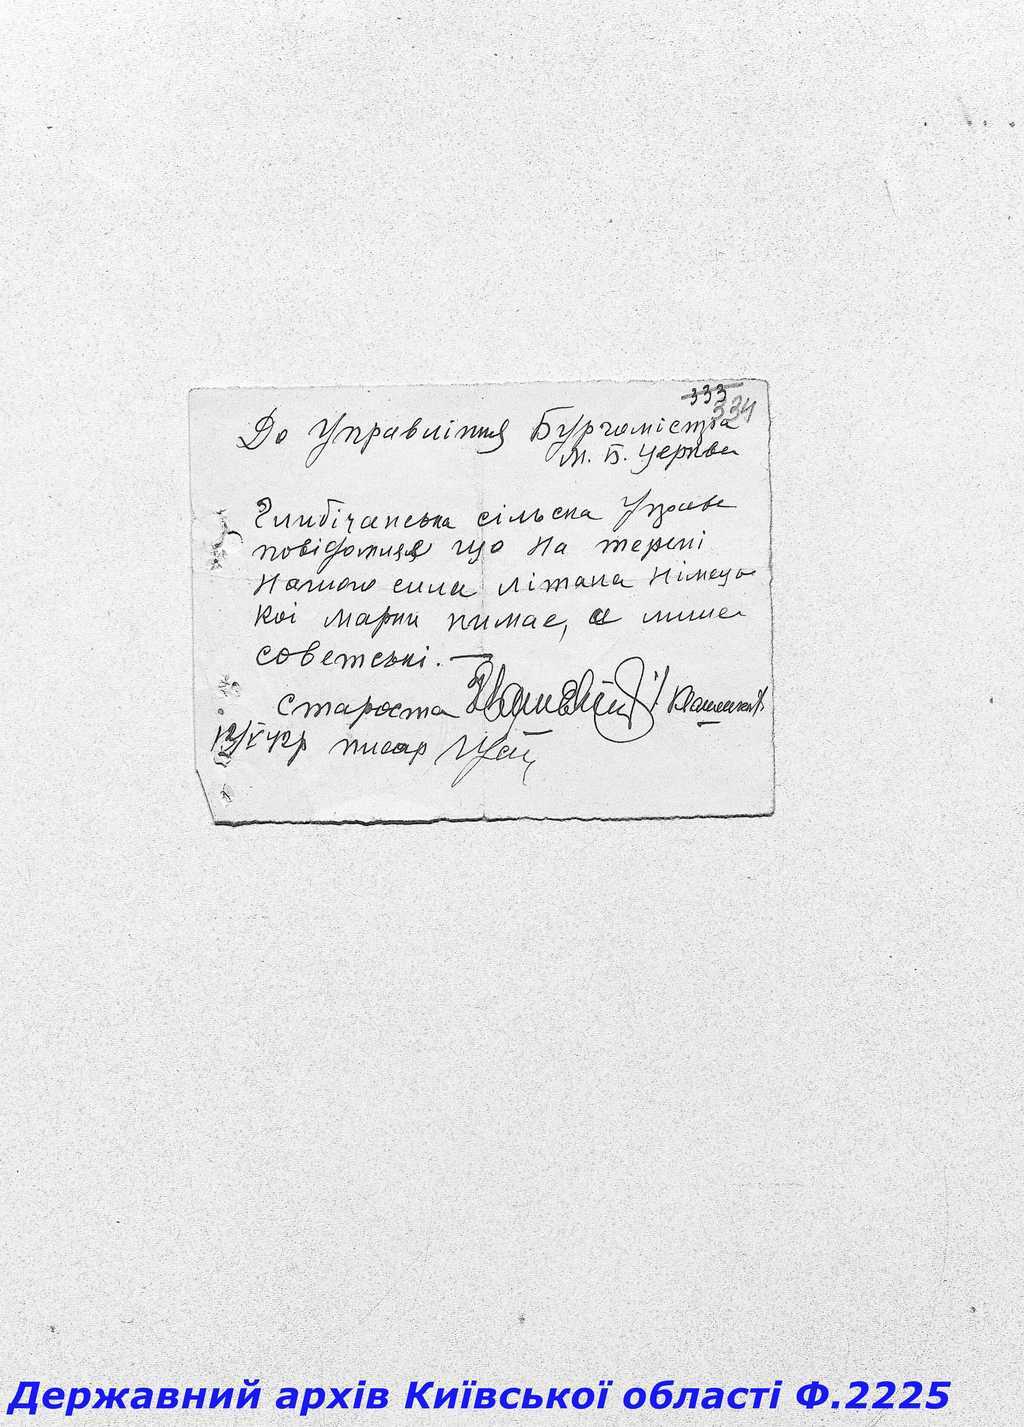 333
334
До Управління Бургомістра
м. Б. Церква
Глибічанська сільска Управа
повідомляє що на терені
Нашого села літака Німець
кої марки нимає, а лише
советські. —
Староста
писар
Державний архів Київської області Ф.2225